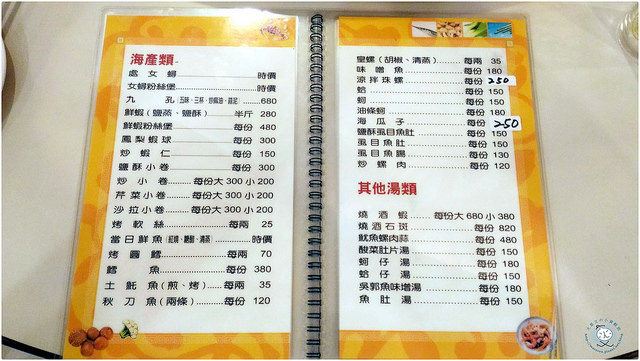 海產類
處女蟳 時價
女蟳粉絲堡 時價
九孔 680
鮮蝦(鹽蒸、鹽酥) 半斤 280
鮮蝦粉絲堡 每份 480
鳳梨蝦球 每份 300
炒蝦仁 每份 150
鹽酥小卷 每份 200
炒小卷 每份大300小200
芹菜小卷 每份大300小200
沙拉小卷 每份大300小200
烤軟絲 每兩 25
當日鮮魚(紅燒、糖醋、清蒸) 時價
烤圓鱈 每兩 70
鱈魚 每份 380
土魠魚(煎、烤) 每兩 35
秋刀魚(兩條) 每份 120
皇螺(胡椒、清蒸) 每兩 35
味噌魚 每份 180
涼拌珠螺 每份 250
蛤 每份 150
蚵 每份 150
油條蚵 每份 180
海瓜子 每份 250
鹽酥虱目魚肚 每份 150
虱目魚肚 每份 150
虱目魚腸 每份 130
炒螺肉 每份 120
其他湯類
燒酒蝦 每份大680小380
燒酒石斑 每份 820
魷魚螺肉蒜 每份 480
酸菜肚片湯 每份 150
蚵仔湯 每份 180
蛤仔湯 每份 150
吳郭魚味噌湯 每份 180
魚肚湯 每份 150